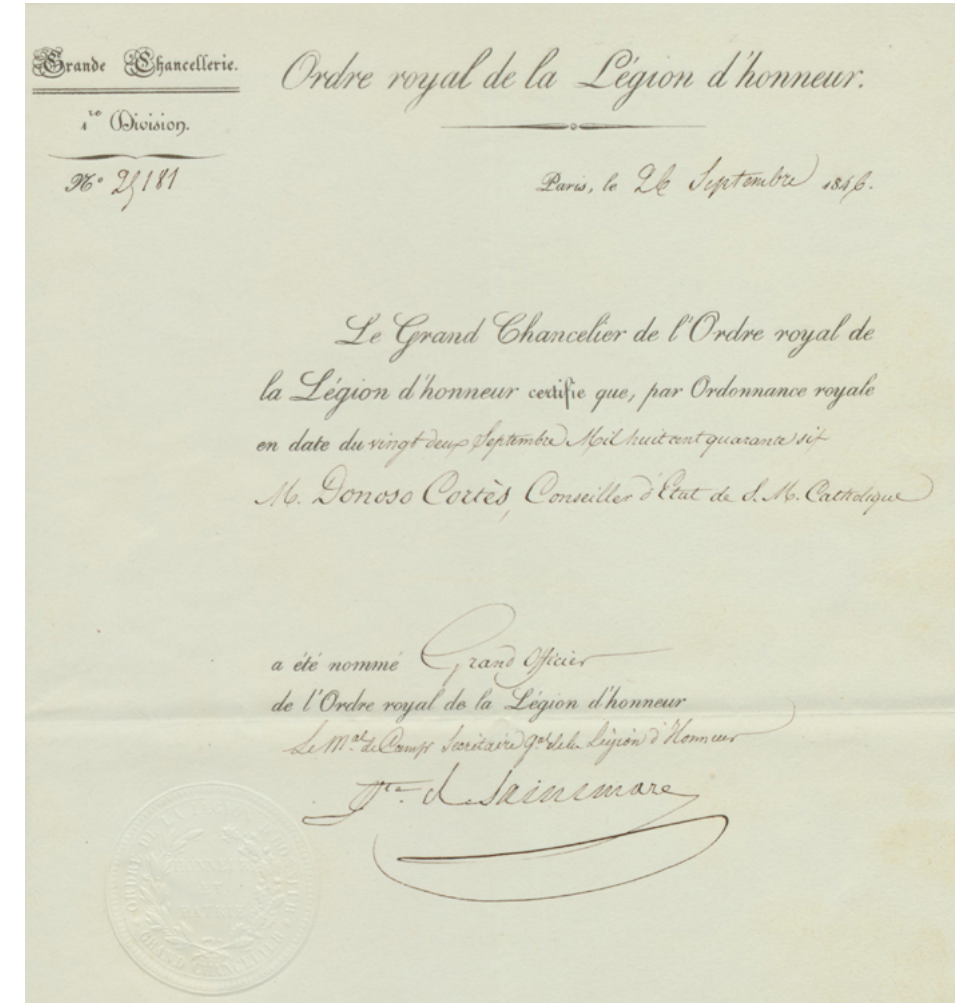 Grande Chancellerie.
Ordre royal de la Légion d'honneur.
1re Division.
N° 25181
Paris, le 26 Septembre 1846.
Le Grand Chancelier de l'Ordre royal de
la Légion d'honneur certifie que, par Ordonnance royale
en date du vingt deux Septembre Mil huit cent quarante six
M. Donoso Cortès, Conseiller d'État de S. M. Catholique
a été nommé Grand Officier
de l'Ordre royal de la Légion d'honneur
Le Mal de Camp Secrétaire gal de la Légion d'Honneur
Vte de Saint mars
HONNEUR
ET
PATRIE